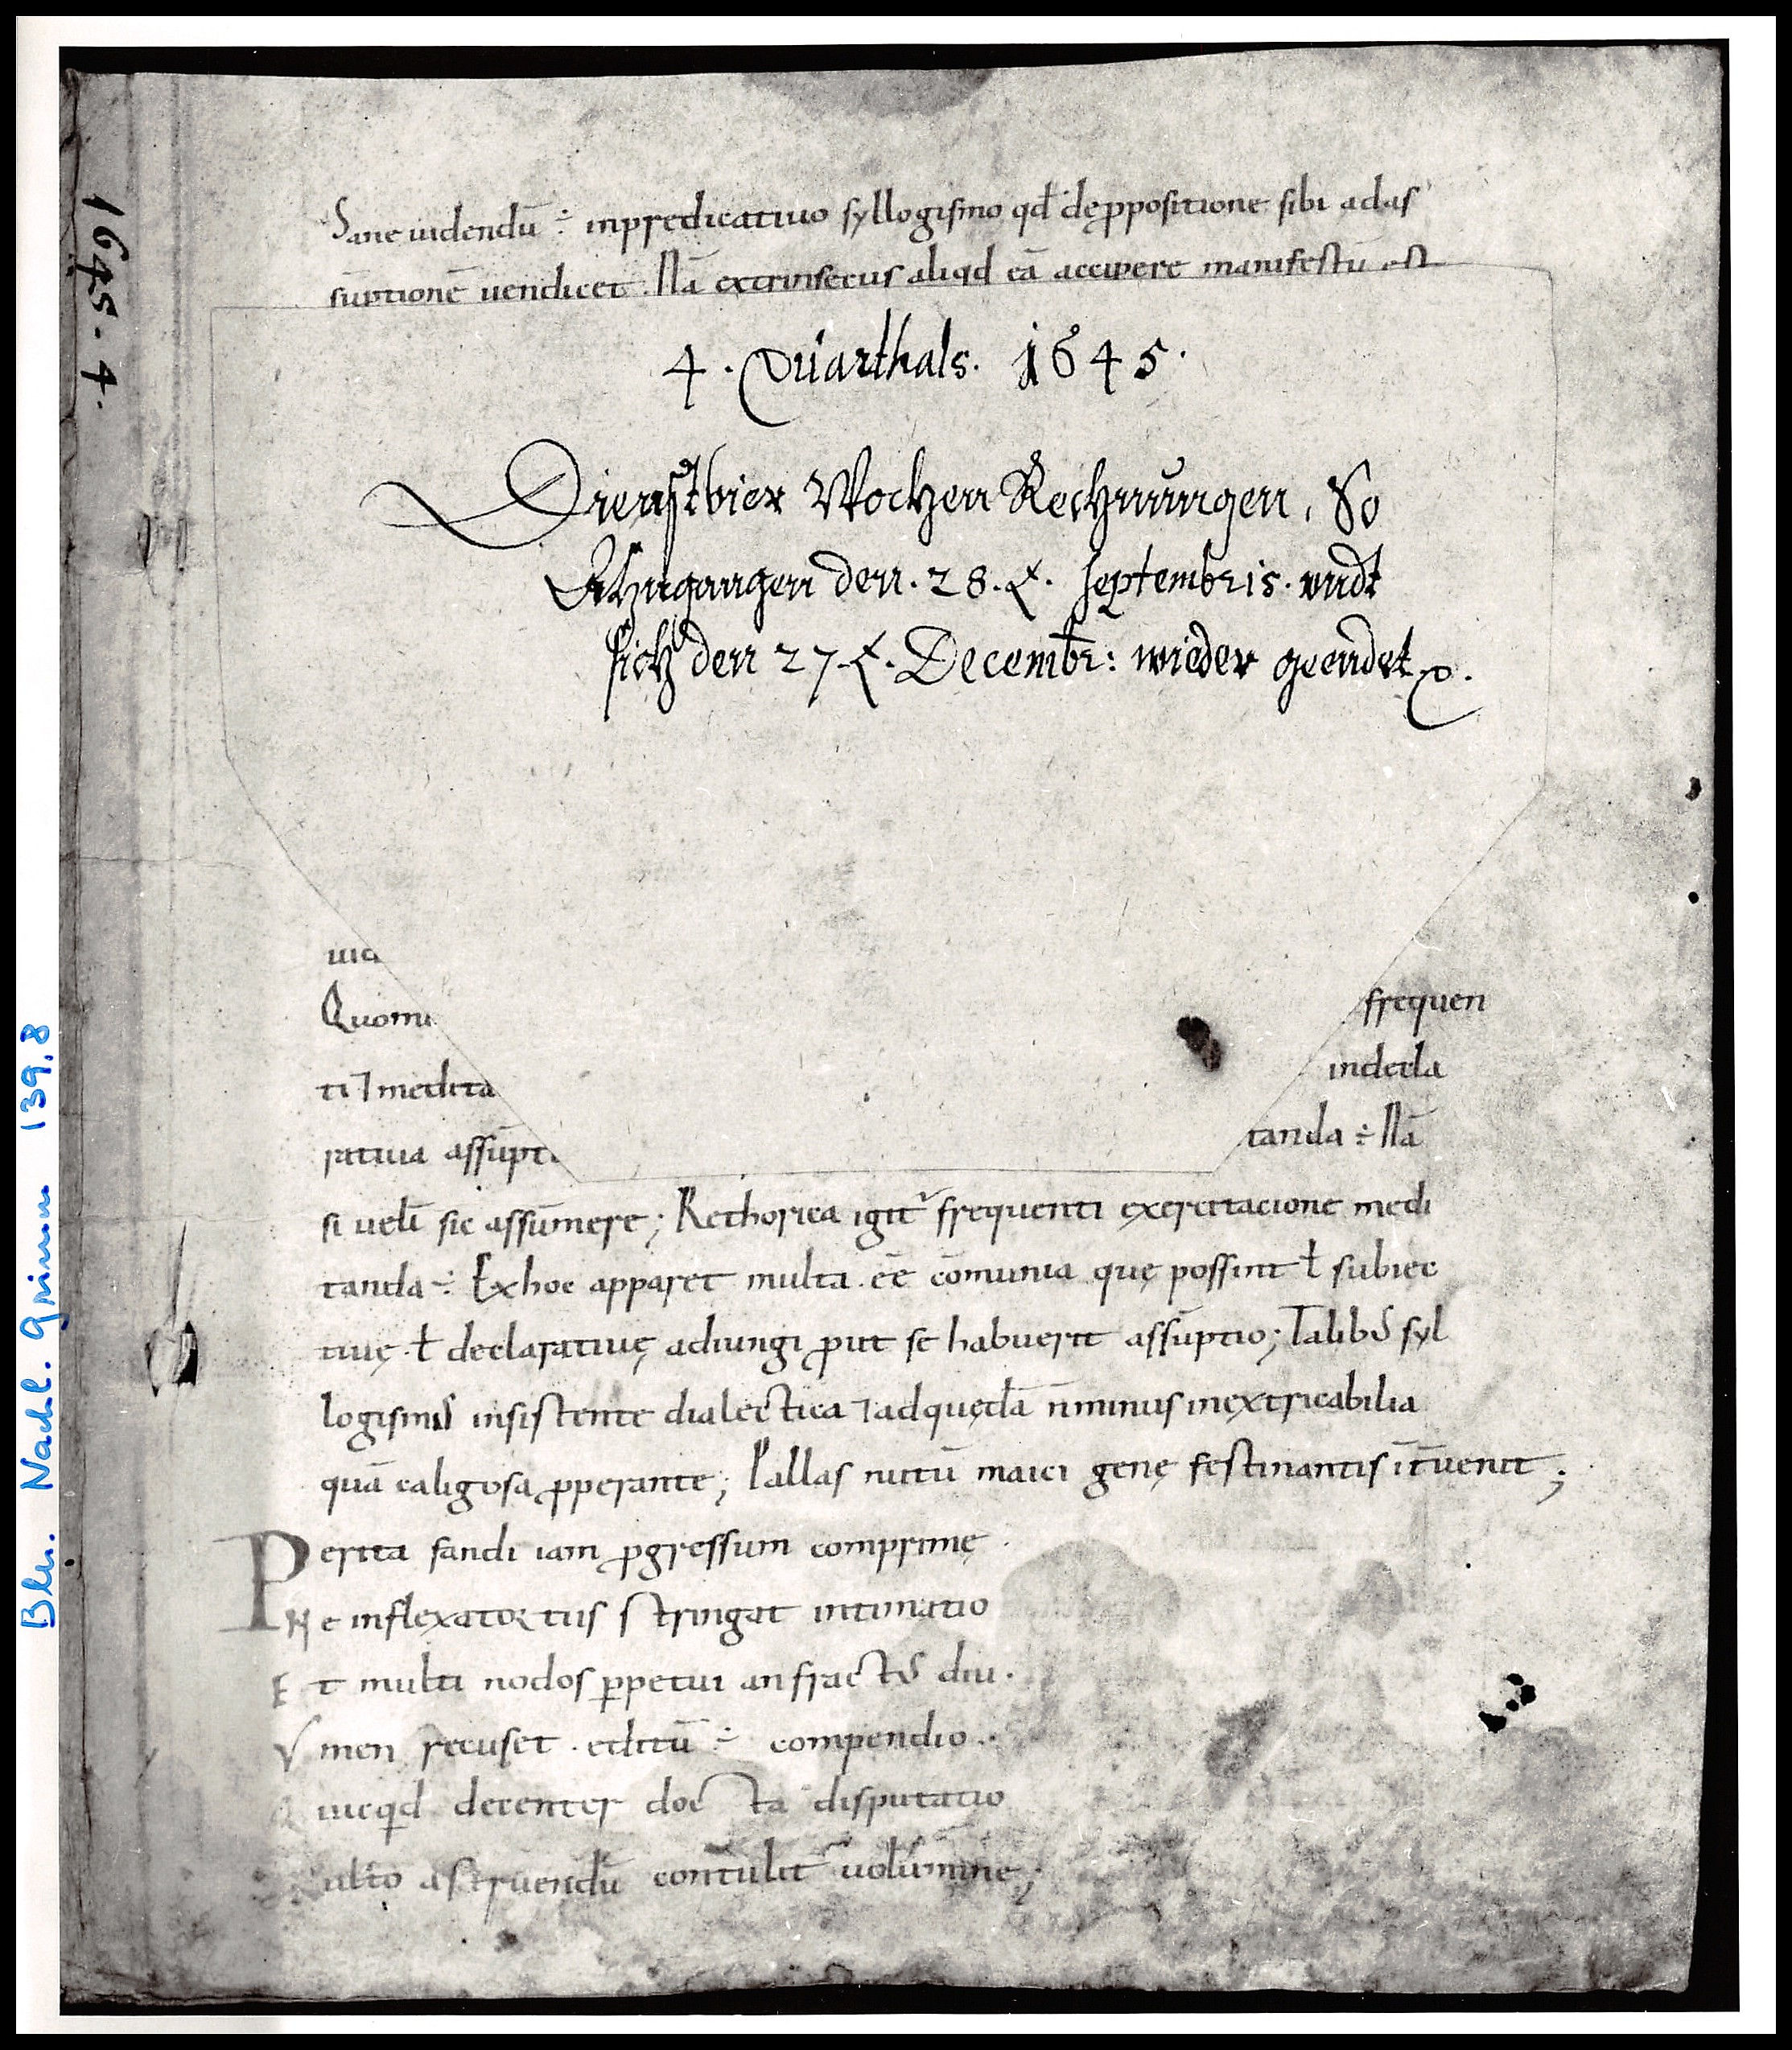 Sane uidendū ÷ inpredicatiuo syllogismo qđ de ꝓpositione sibi adas
sūptionē uendicet. Nā extrinsecus aliqd eā accipere manifestū est
4. Quarthals. 1645.
Dienstbier Wochen Rechnungen, So
Ahngangen den. 28. septembris. vndt
sich den 27. Decembr: wieder geendet
uia
Quom frequen
ti ⁊ medita indecla
ratiua assūpt tanda ÷ Nā
si uelī sic assūmere; Rethorica igit᷑ frequenti exercitacione medi
tanda ÷ Exhoc apparet multa . eē cōmunia quę possint ł subiec
tiuę . ł declaratiuę adiungi ꝓut se habuerit assūptio; Talibꝰ syl
logismis insistente dialectica ⁊ adquędā ñminus inextricabilia
quā caligosa ꝓperante; Pallas nutū maici genę festinantis īt̄uenit;
Perita fandi iam ꝓgressum comprimę
Ne inflexa tortus stringat intimatio
Et multi nodos ꝑpetui anfractꝰ diu.
Vmen recuset . editū ÷ compendio.
Quicqd decenter docta disputatio
Multo astruendū contulit uolumine;
1645. 4.
Bln. Nachl. Grimm 139,8